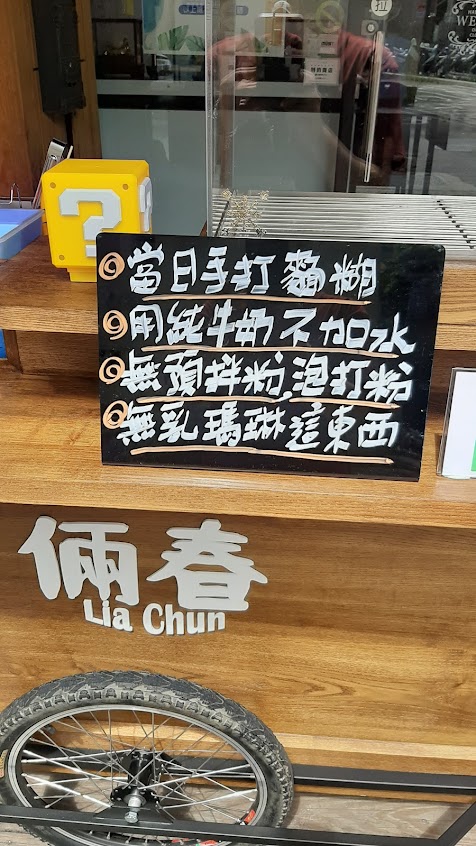 ?
當日手打麵糊
用純牛奶不加水
無預拌粉,泡打粉
無乳瑪琳這東西
倆春
Lia Chun